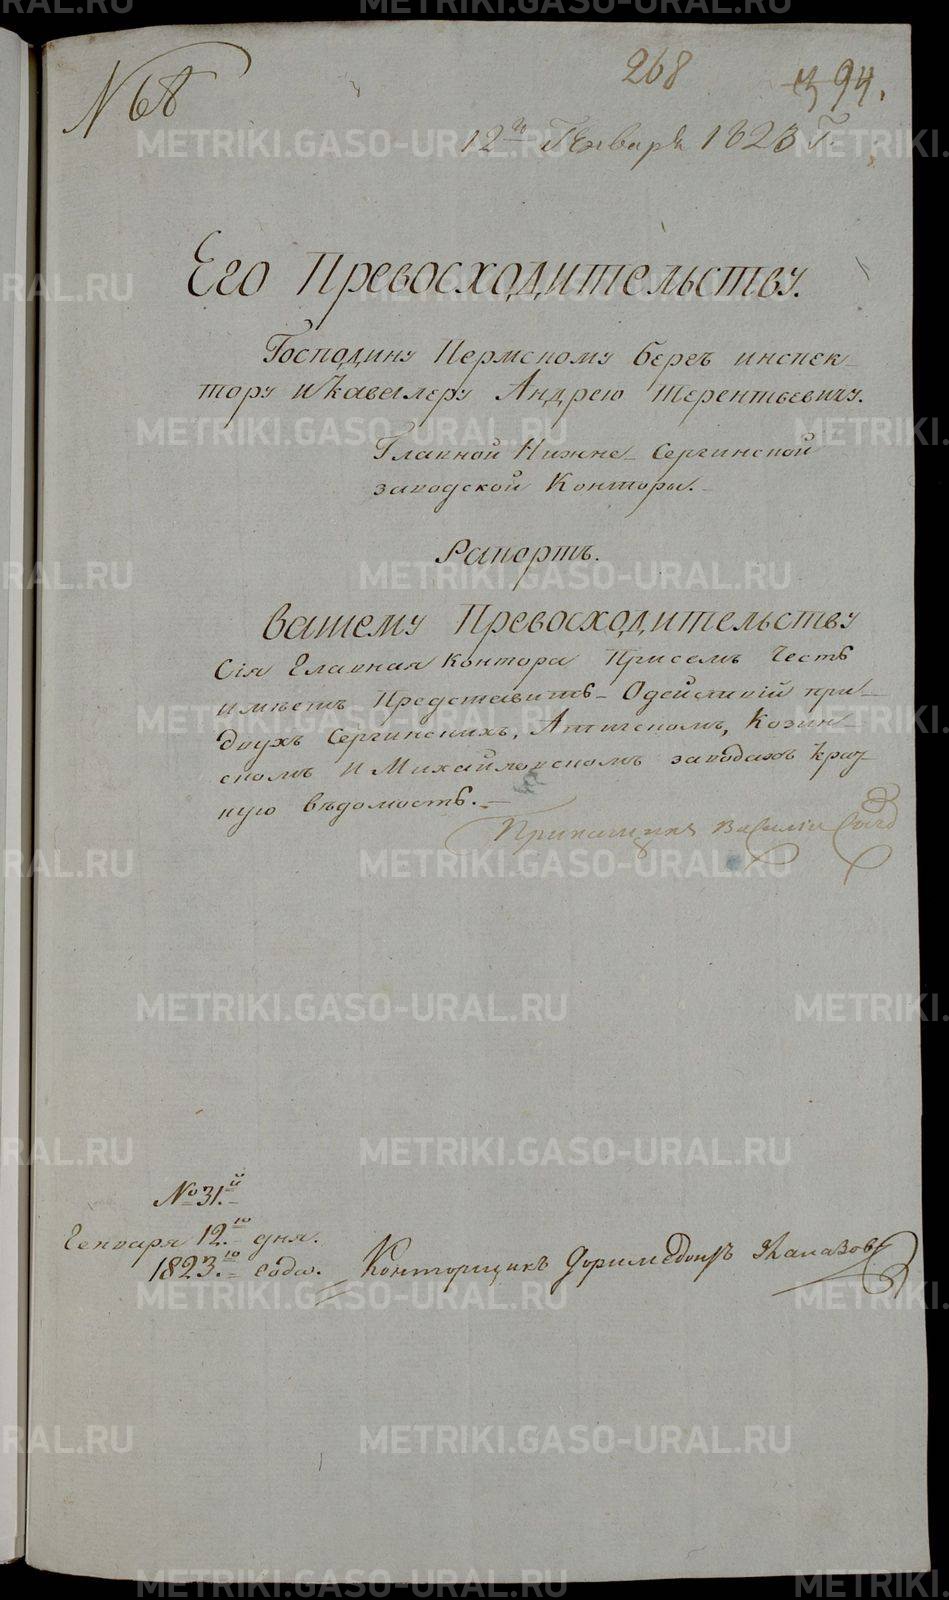 N 68
268
94.
12го Генваря 1823 Г.
Его Превосходительству.
Господину Пермскому Бергъ инспек-
тору и Кавалеру Андрею Терентьевичу.
Главной Нижне-Сергинской
заводской Конторы.
Рапортъ.
Вашему Превосходительству
Сія Главная Контора Присемъ Честь
имѣетъ Представить- Одействіи при
двухъ Сергинскихъ, Атигскомъ, Козин-
скомъ и Михайловскомъ заводахъ крат-
кую вѣдомость.-
Прикащикъ Василіи
№ 31.й
Генваря 12.го дня.
1823.го года.
Конторщикъ Доримедонтъ
METRIKI.GASO-URAL.RU